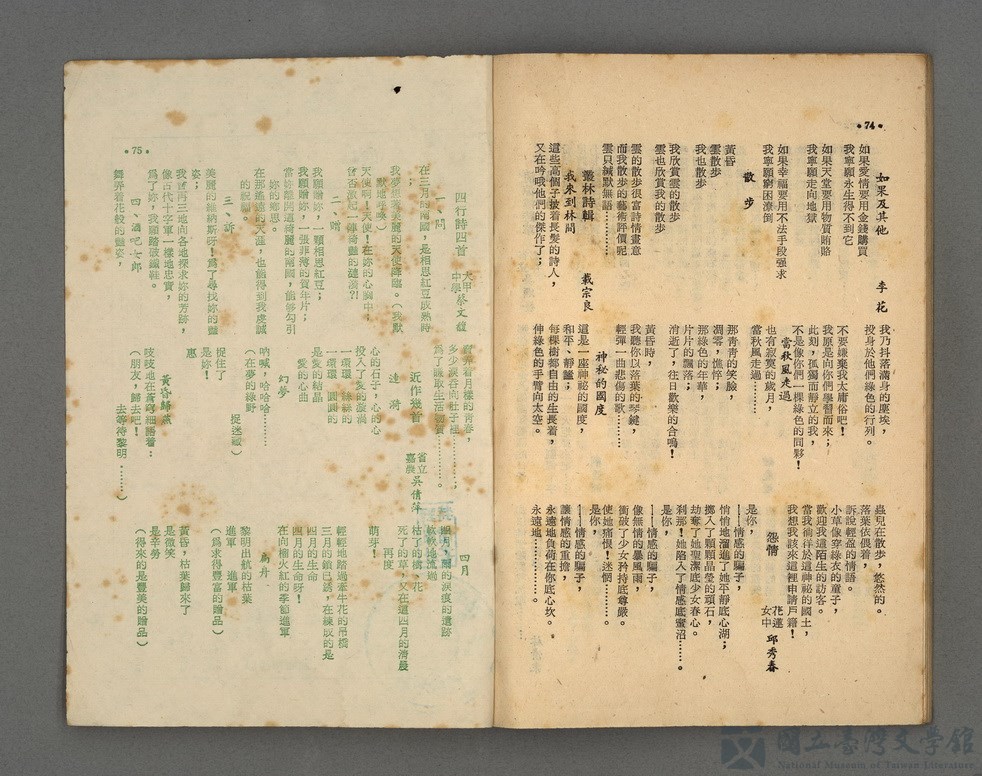 •74•
如果及其他
李花
如果愛情要用金錢購買
我寧願永生得不到它
如果天堂要用物質賄賂
我寧願走向地獄
如果幸福要用不法手段强求
我寧願窮困潦倒
散步
黃昏
雲散步
我也散步
我欣賞雲的散步
雲也欣賞我的散步
雲的散步很富詩情畫意
而我散步的藝術評價呢
雲只緘默無語…………
叢林詩輯
戴宗良
我來到林間
這些高個子披着長髮的詩人，
又在吟哦他們的傑作了；
我乃抖落滿身的塵埃，
投身於他們綠色的行列。
不要嫌棄我太庸俗吧！
我原是向你們學習而來；
此刻，孤獨而靜立的我，
不是像你們一棵綠色的同夥！
當秋風走過
也有寂寞的歲月，
當秋風走過………
那青青的笑臉，
凋零，憔悴；
那綠色的年華，
片片的飄落；
消逝了，往日歡樂的合鳴！
黃昏時，
我聽你以落葉的琴鍵，
輕彈一曲悲傷的歌………
神秘的國度
這是一座神祕的國度，
和平、靜謐；
每棵樹都自由的生長着，
伸綠色的手臂向太空。
蟲兒在散步，悠然的。
落葉依偎着，
訴說輕盈的情語。
小草像穿綠衣的童子，
歡迎我這陌生的訪客。
當我徜徉於這神祕的國土，
我想我該來這裡申請戶籍！
怨情
花蓮女中
邱秀春
是你，
——情感的騙子，
悄悄地溜進了她平靜底心湖；
擲入了顆顆晶瑩的頑石，
劫奪了她聖潔底少女春心。
刹那！她陷入了情感底蜜沼……。
——情感的騙子，
像無情的暴風雨，
衝破了少女矜持底尊嚴。
使她痛恨！迷惘………
是你，
——情感的騙子，
讓情感的重擔，
永遠地負荷在你底心坎。
永遠地…………。
•75•
四行詩四首
大甲中學
蔡文馥
一、問
在三月的南國，是相思紅豆成熟時
我夢想我美麗的天使降臨。（我默
默地祈求）
天使啊！天使！在妳的心胸中；
會否激起一陣綺艷的漣漪？！
二、贈
我願贈妳，一顆相思紅豆；
我願贈妳，一張菲薄的賀年片；
當妳離開這綺麗的南國，能够勾引
妳的鄉思。
在那遙遠的天涯，也能得到我虔誠
的祝福。
三、訴
美麗的維納斯呀！爲了尋找妳的豔
姿；
我曾再三地向各地探求妳的芳跡，
像古代十字軍一樣地忠實，
爲了妳，我願踏破鐵鞋。
四、酒吧女郎
舞弄着花般的豔姿，
對着着月樣的青春，
爲了賺取生活物質………。
近作幾首
省立嘉農
吳倩萍
漣漪
心的石子，心的心
投入了愛的漩渦
一環環，絲絲的
一環環，圓圓的
是愛的結晶
愛的心曲
幻夢
吶喊，哈哈哈………
（在夢的綠野
捉迷藏）
捉住了
是妳！
惠
黃昏歸燕
吱吱地在蒼穹細語着：
（朋友，歸去吧！
去等待黎明………）
四月
再度
萌芽！
輕輕地踏過牽牛花的吊橋
三月的鎖已銹，在練成的是
四月的生命
四月的生命呀！
在向榴火紅的季節進軍
黎明出航的枯葉
進軍　進軍
（爲求得豐富的贈品）
黃昏，枯葉歸來了
是微笑
是辛勞
（得來的是豐美的贈品）
國立臺灣文學館
National Museum of Taiwan Literature